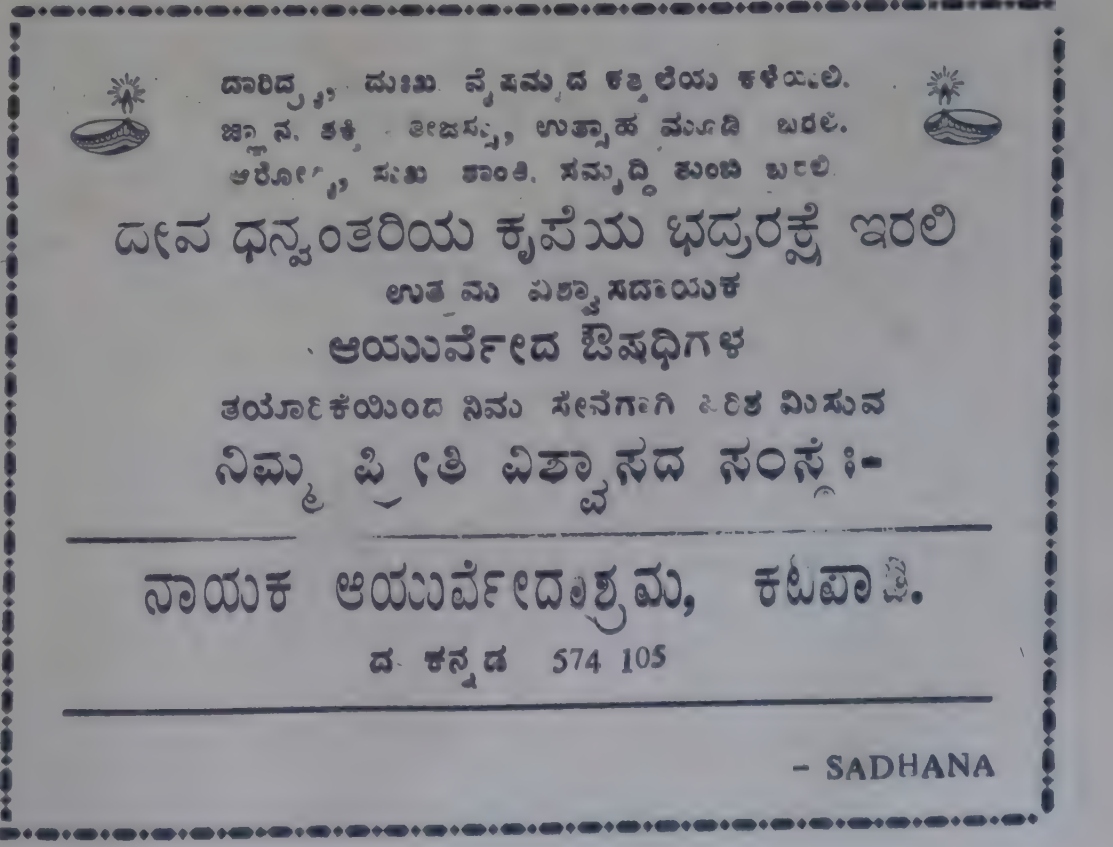 ದಾರಿದ್ರ್ಯ, ದುಃಖ ವೈಷಮ್ಯದ ಕತ್ತಲೆಯ ಕಳೆಯಲಿ.
ಜ್ಞಾನ. ಶಕ್ತಿ ತೇಜಸ್ಸು, ಉತ್ಸಾಹ ಮೂಡಿ ಬರಲಿ.
ಆರೋಗ್ಯ, ಸುಖ ಶಾಂತಿ. ಸಮೃದ್ಧಿ ತುಂಬಿ ಬರಲಿ.
ದೇವ ಧನ್ವಂತರಿಯ ಕೃಪೆಯ ಭದ್ರರಕ್ಷೆ ಇರಲಿ
ಉತ್ತಮ ವಿಶ್ವಾಸದಾಯಕ
ಆಯುರ್ವೇದ ಔಷಧಿಗಳ
ತಯಾರಿಕೆಯಿಂದ ನಿಮ್ಮ ಸೇವೆಗಾಗಿ ಪರಿಶ್ರಮಿಸುವ
ನಿಮ್ಮ ಪ್ರೀತಿ ವಿಶ್ವಾಸದ ಸಂಸ್ಥೆ :-
ನಾಯಕ ಆಯುರ್ವೇದಾಶ್ರಮ, ಕಟಪಾಡಿ.
ದ. ಕನ್ನಡ 574 105
- SADHANA